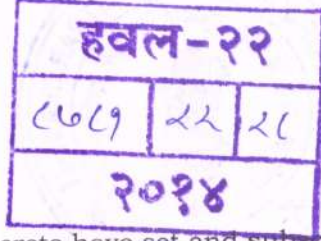 हवल-२२
८७८१ २२ २८
२०१४
have set and